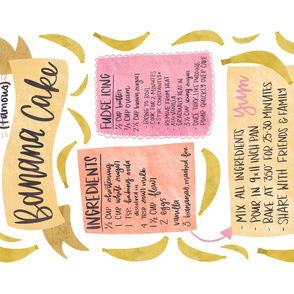 (famous)
Banana Cake
FUDGE ICING
½ cup butter
¼ cup cream
2 ½ cup brown sugar
BRING TO BOIL
COOK FOR 2 MINUTES
STIR CONSTANTLY
REMOVE FROM HEAT
OCCASIONALLY BEAT IN
¾ CUP icing sugar
ONCE THICK LIKE FUDGE
POUR QUICKLY OVER CAKE
INGREDIENTS
½ cup shortening
1 cup white sugar
1 tsp. baking soda
dissolved in
4 tbsp. sour milk
1 ½ cup flour
2 eggs
vanilla
3 bananas, mashed fine
yum
MIX ALL INGREDIENTS
- POUR IN 9x11 INCH PAN
BAKE AT 350° FOR 25-30 MINUTES
- SHARE WITH FRIENDS & FAMILY